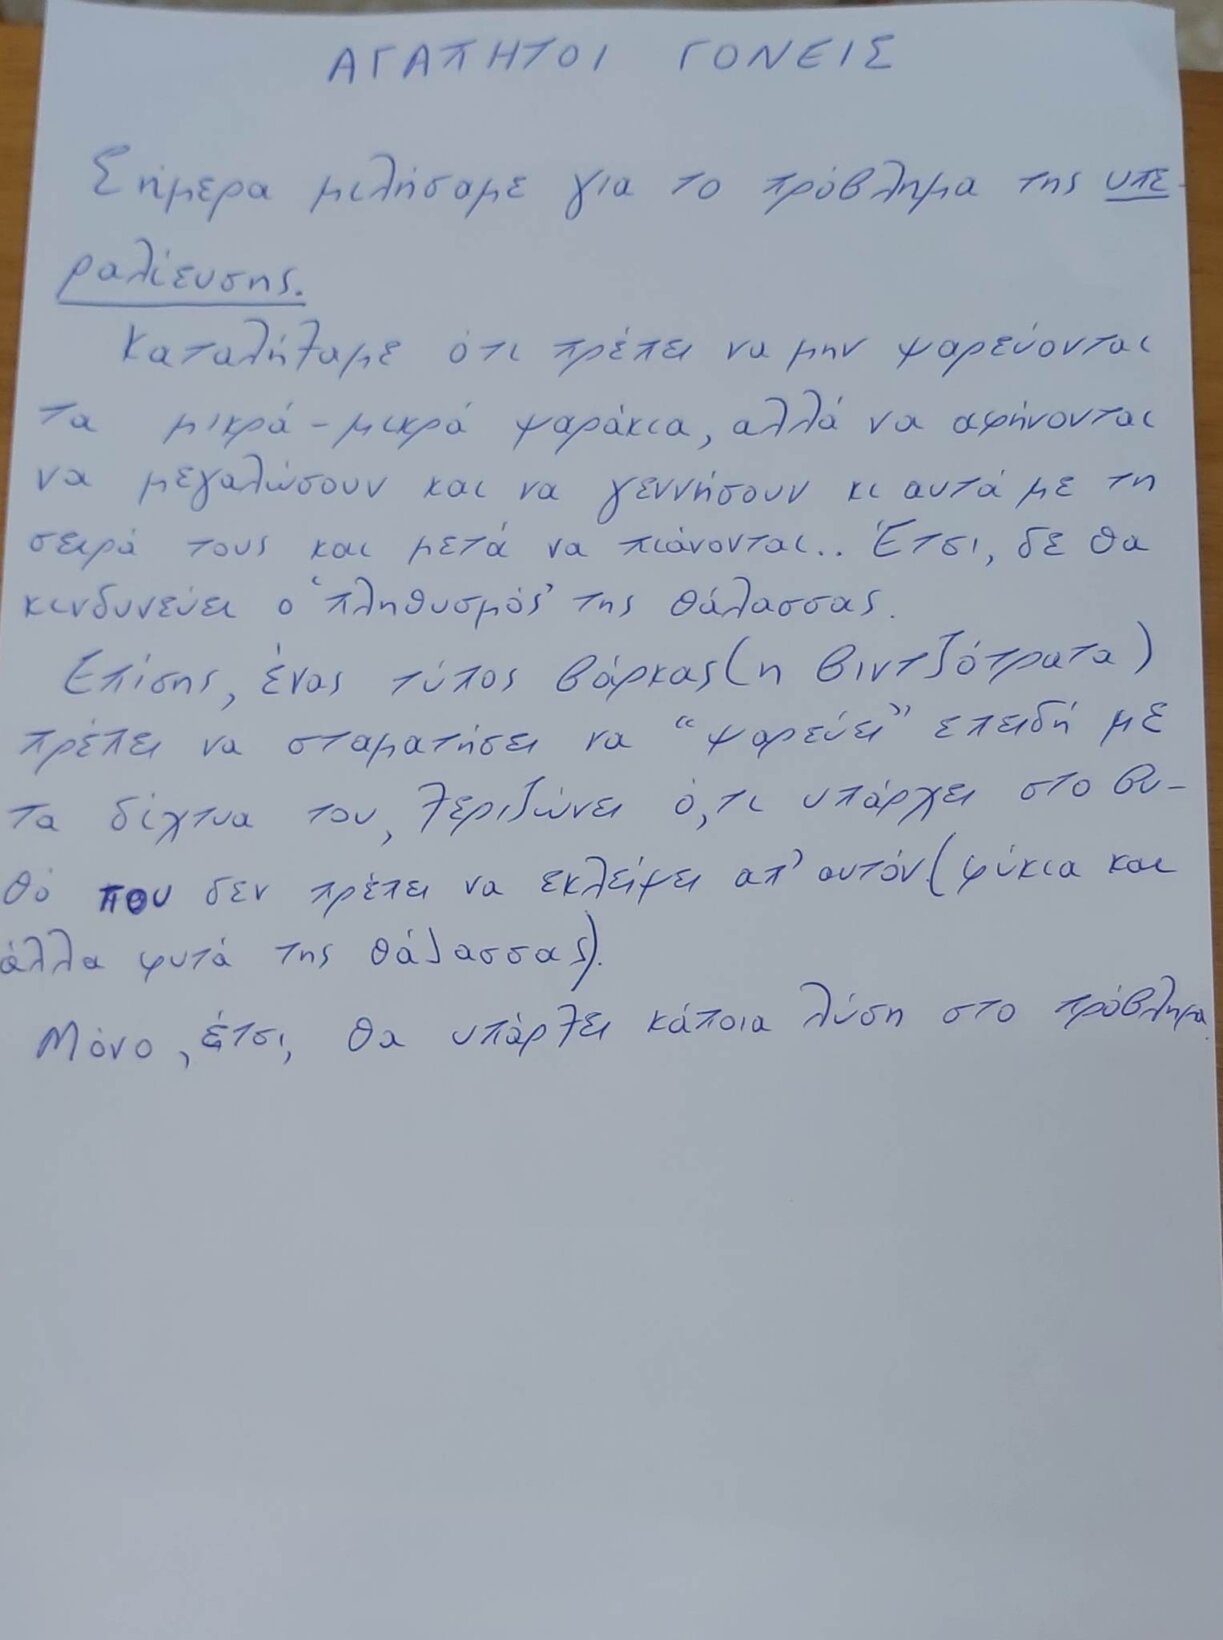 ΑΓΑΠΗΤΟΙ ΓΟΝΕΙΣ
Σήμερα μιλήσαμε για το πρόβλημα της υπε-
ραλίευσης.
Καταλήξαμε ότι πρέπει να μην ψαρεύονται
τα μικρά-μικρά ψαράκια, αλλά να αφήνονται
να μεγαλώσουν και να γεννήσουν κι αυτά με τη
σειρά τους και μετά να πιάνονται.. Έτσι, δε θα
κινδυνεύει ο 'πληθυσμός' της θάλασσας.
Επίσης, ένας τύπος βάρκας (η βιντζότρατα)
πρέπει να σταματήσει να "ψαρεύει" επειδή με
τα δίχτυα του, ξεριζώνει ό,τι υπάρχει στο βυ-
θό που δεν πρέπει να εκλείψει απ' αυτόν (φύκια και
άλλα φυτά της θάλασσας).
Μόνο, έτσι, θα υπάρξει κάποια λύση στο πρόβλημα.